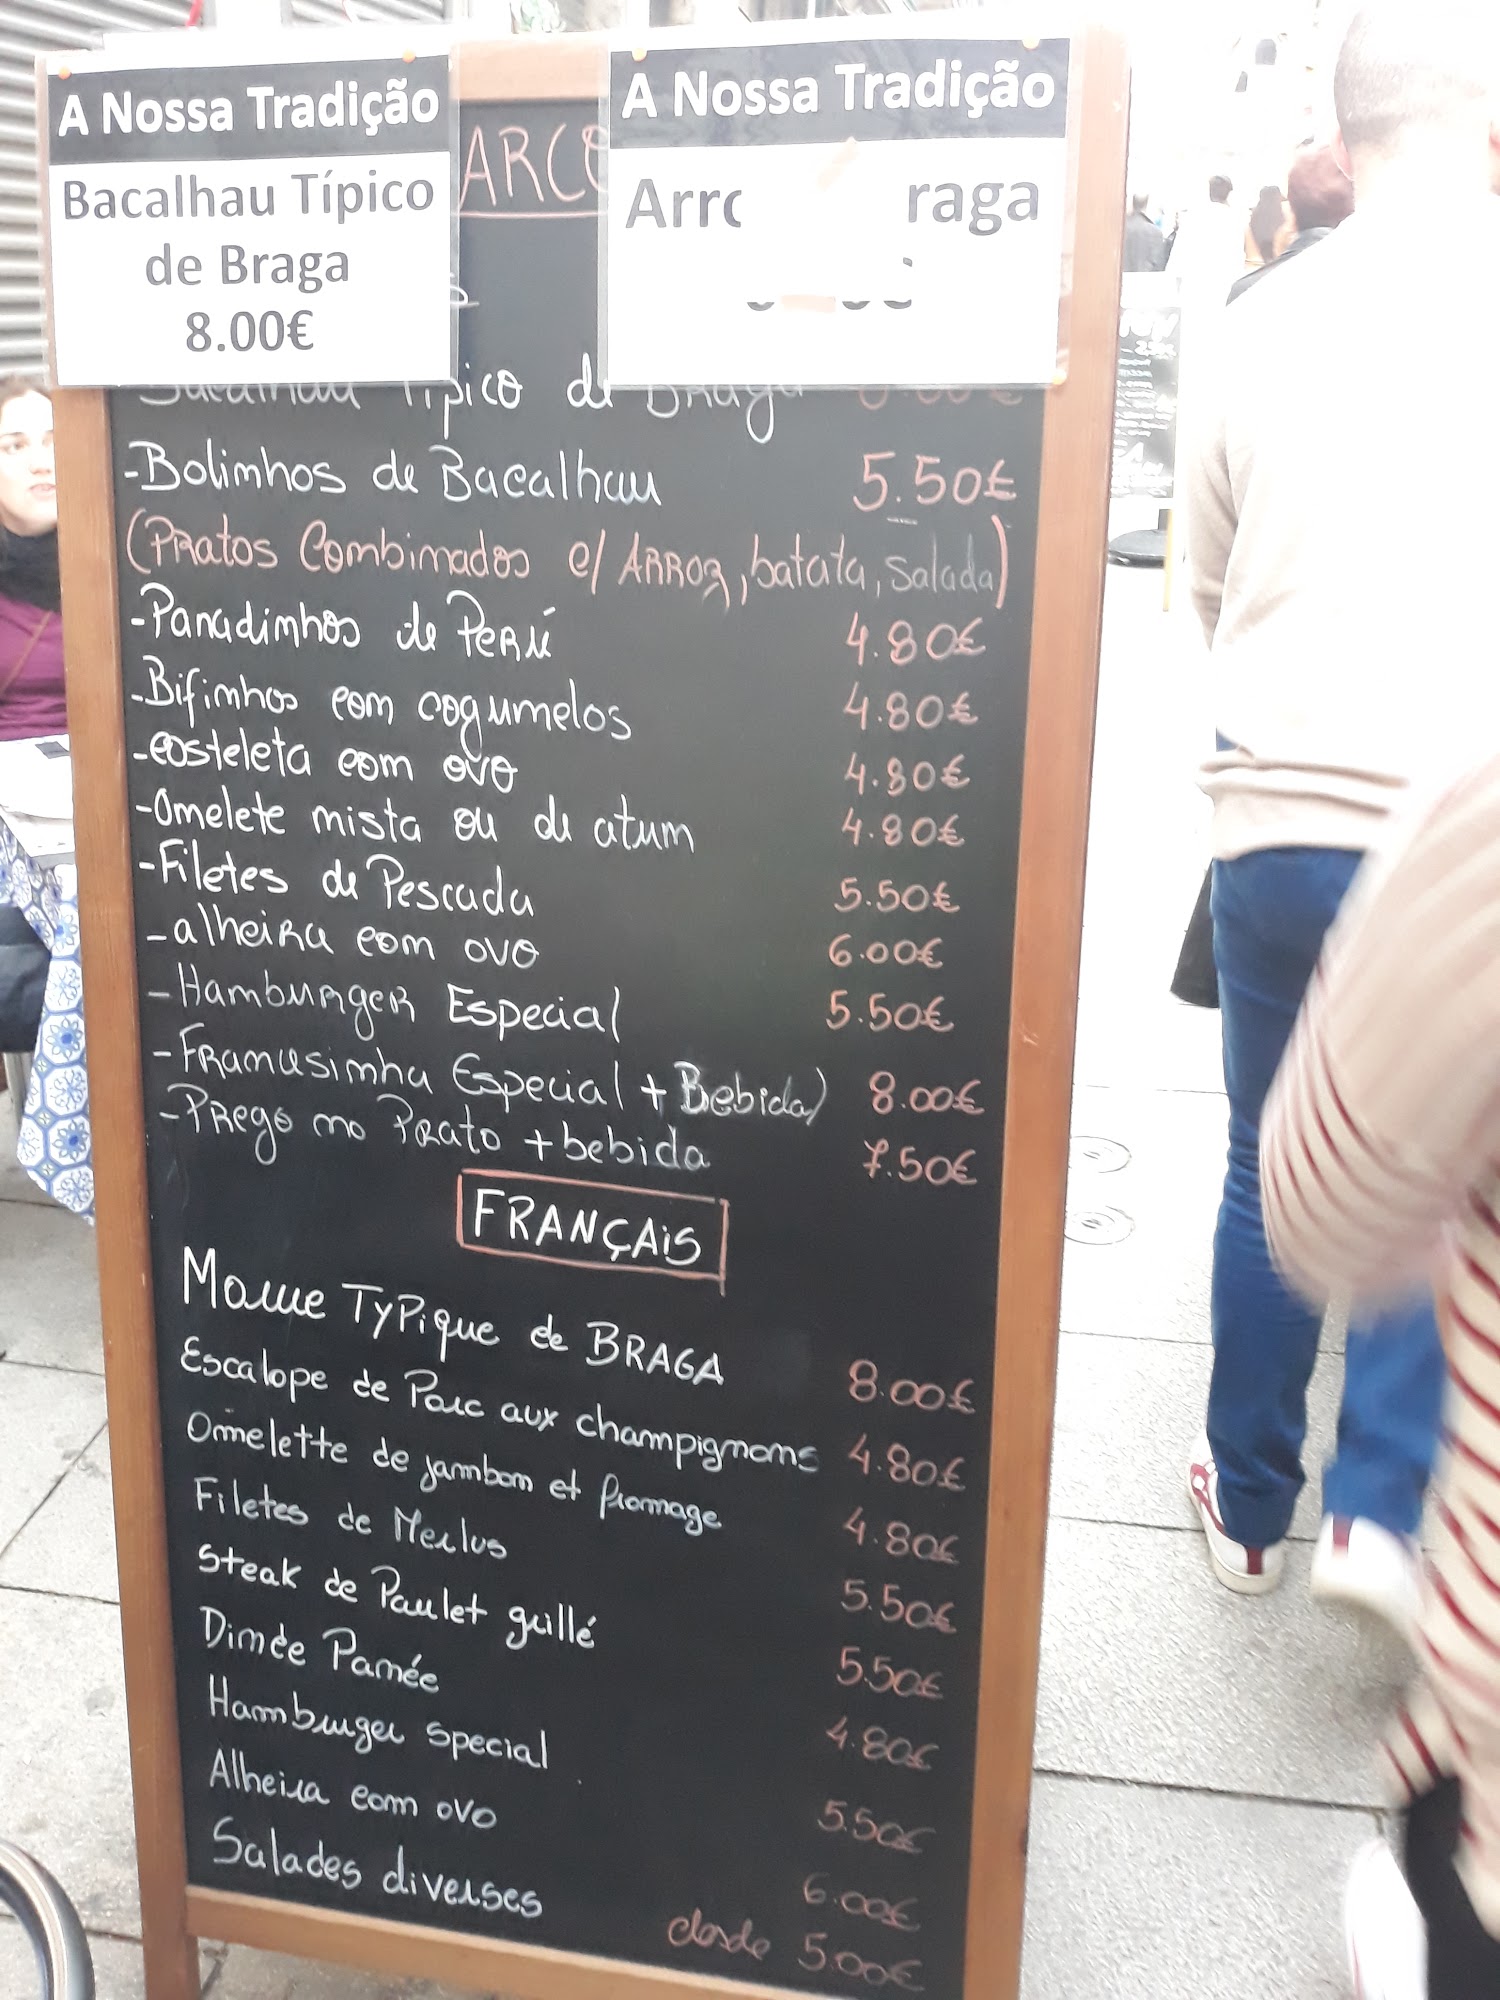 A Nossa Tradição
Bacalhau Típico
de Braga
8.00€
A Nossa Tradição
Bacalhau Típico de Braga
- Bolinhos de Bacalhau 5.50€
(Pratos Combinados c/ Arroz, batata, salada)
- Panadinhos de Perú 4.80€
- Bifinhos com cogumelos 4.80€
- costeleta com ovo 4.80€
- Omelete mista ou de atum 4.80€
- Filetes de Pescada 5.50€
- alheira com ovo 6.00€
- Hamburger Especial 5.50€
- Francesinha Especial + Bebida) 8.00€
- Prego no Prato + bebida 7.50€
FRANÇAiS
Morue Typique de BRAGA 8.00€
Escalope de Porc aux champignons 4.80€
Omelette de jambon et fromage 4.80€
Filetes de Merlus 5.50€
Steak de Paulet grillé 5.50€
Dinde Panée 4.80€
Hamburger special 5.50€
Alheira com ovo 6.00€
Salades diverses desde 5.00€